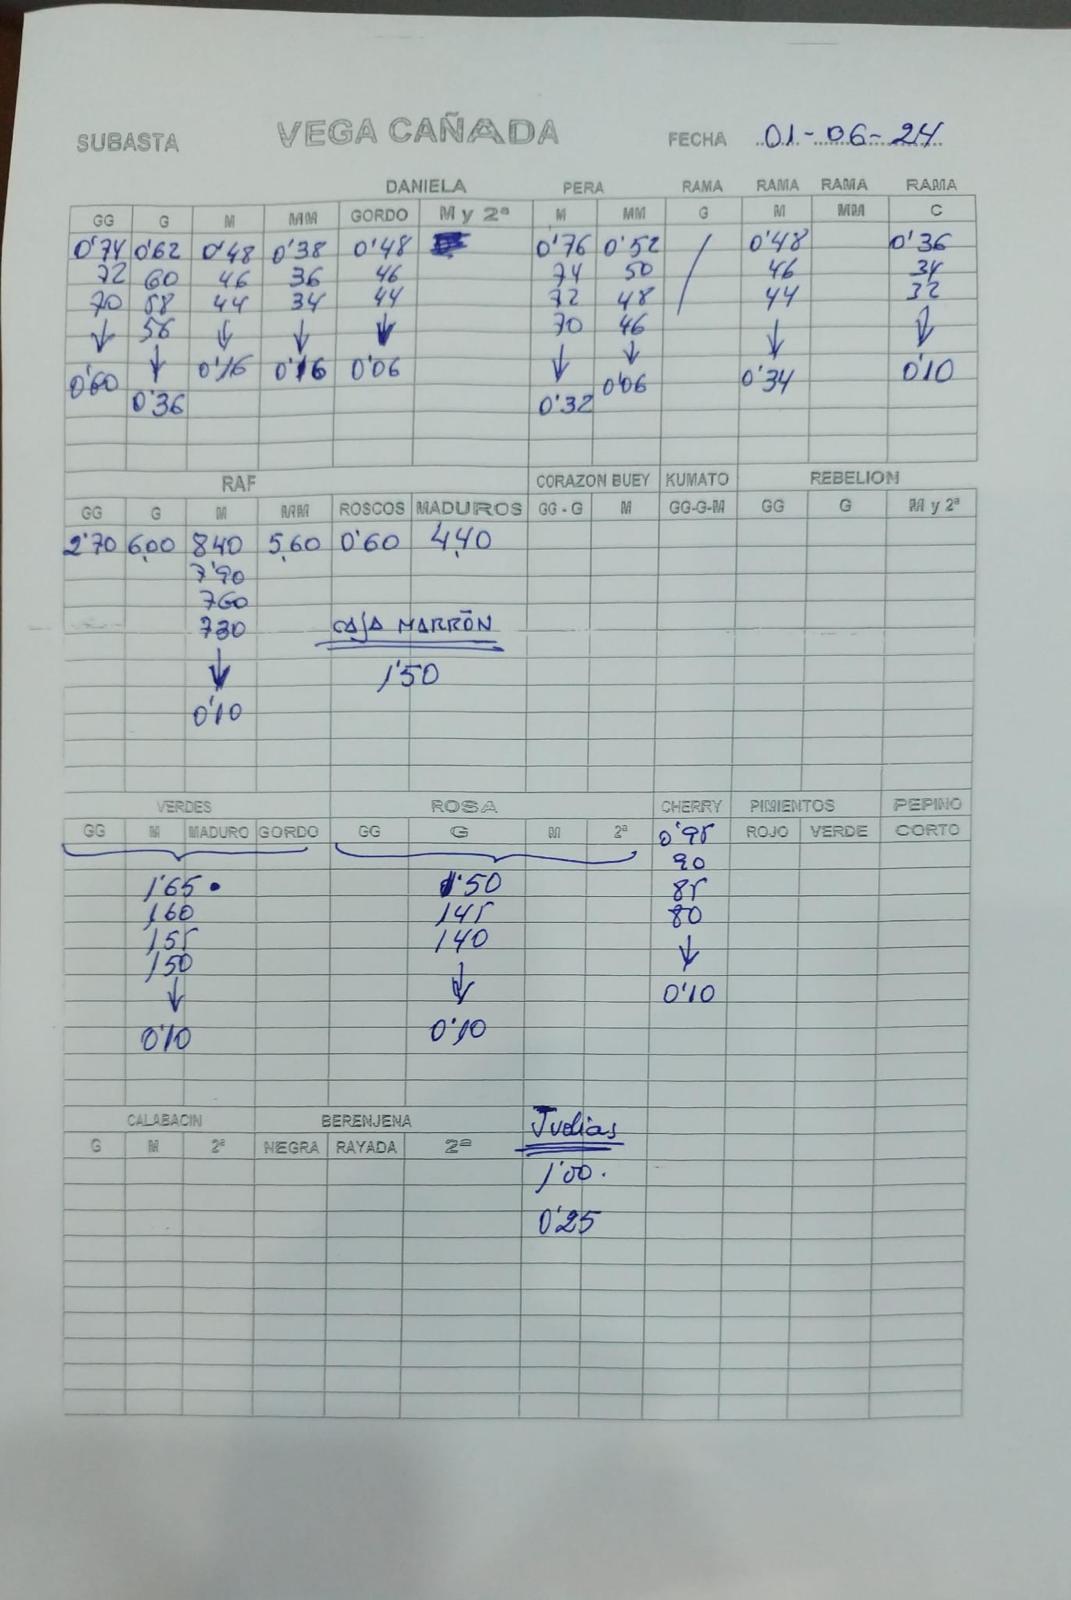 SUBASTA VEGA CAÑADA FECHA 01-06-24
DANIELA PERA RAMA RAMA RAMA RAMA
GG G M MM GORDO M y 2ª M MM G M MM C
0'74 0'62 0'48 0'38 0'48 0'76 0'52 / 0'48 0'36
72 60 46 36 46 74 50 46 34
70 58 44 34 44 72 48 44 32
↓ 56 ↓ ↓ ↓ 70 46 ↓ ↓
0'60 ↓ 0'16 0'16 0'06 ↓ ↓ 0'34 0'10
0'36 0'32 0'06
RAF CORAZON BUEY KUMATO REBELION
GG G M MM ROSCOS MADUROS GG - G M GG-G-M GG G M y 2ª
2'70 6,00 840 5,60 0'60 4,40
7'90
760
730 CAJA MARRÓN
↓ 1'50
0'10
VERDES ROSA CHERRY PIMIENTOS PEPINO
GG M MADURO GORDO GG G M 2ª 0'95 ROJO VERDE CORTO
90
1'65 . 1'50 85
160 145 80
155 140 ↓
150 ↓ 0'10
↓ 0'10
0'10
CALABACIN BERENJENA Judias
G M 2ª NEGRA RAYADA 2ª
1'00.
0'25